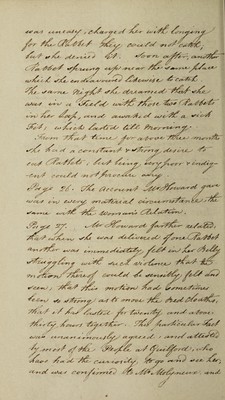 was uneasy, charged her with longing
for the Rabbet they could not catch,
but she denied it. Soon after, another
Rabbet sprung up near the same place
which she endeavoured likewise to catch.
The same Night she dreamed that she
was in a Field with those two Rabbets
in her Lap, and awaked with a sick
Fit, which lasted till Morning.
From that time for above three months
she had a constant & strong desire to
eat Rabbets, but being very poor & indig-
ent could not procure any
Page 26. The account Mr Howard gave
was in every material circumstance the
same with the woman's Relation.
Page 27. Mr Howard farther related,
that when she was delivered of one Rabbet
another was immediately felt in her Belly
struggling with such violence that the
motion thereof could be sensibly felt and
seen; that this motion had sometimes
been so strong as to move the Bed cloaths,
that it has lasted for twenty and above
thirty hours together. This particular Fact
was unanimously agreed, and attested
by most of the People at Guilford, who
have had the curiosity to go and see her,
and was confirmed to Mr Molyneux and